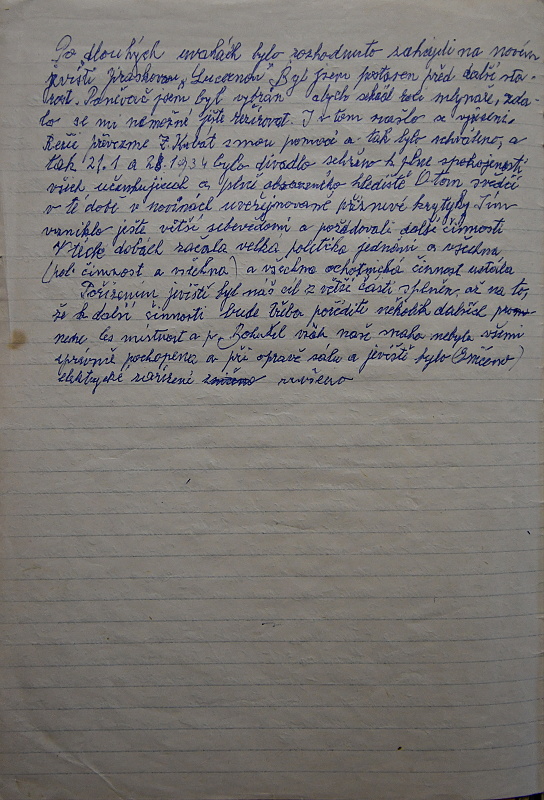 Po dlouhých uvahách bylo rozhodnuto zahájiti na novém
jevišti Jiráskovou „Lucernou" Byl jsem postaven před další sta-
rost. Poněvač jsem byl vybrán abych sehrál roli mlynáře, zda-
lo se mi nemožné ještě režírovat. I v tom naslo
Režii převezme Z. Kabát s mou pomocí a tak bylo schváleno, a
tak 21.1 a 28.1934 bylo divadlo sehráno k plné spokojenosti
všech učinkujících a plně obsazeného hlediště O tom svědčí
v té době v novinách uveřejnované příznivé krytyky Tím
vzniklo ještě větší sebevědomí a požadovali další činnosti
V těch dobách začala velká politická jednání a všechna
(pol. činnost a všechna) a všechna ochotnická činnost ustála
Pořízením jeviště byl náš cíl z větší části splněn, až na to,
že k další činnosti bude třeba poříditi několik dalších
nemc. les místnost a p. Bohužel však naše snaha nebyla všemi
správně pochopena a při opravě sálu a jeviště bylo (Zničeno)
elektrycké zařízení zničeno zrušeno